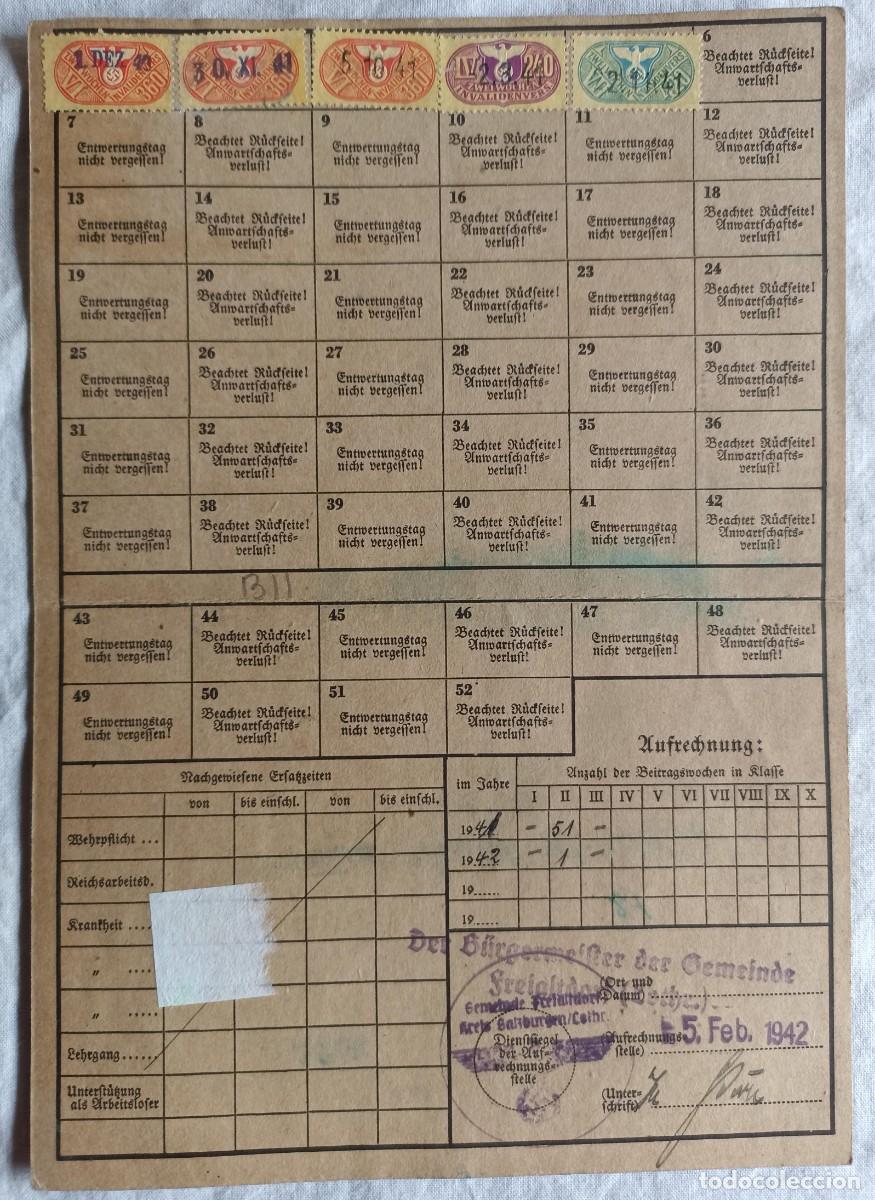 1. DEZ 41
30. XI. 41
5 10 41
2 8 41
2 1 41
IV
240
ZWEI WOCHEN
INVALIDENVERS
6
Beachtet Rückseite!
Anwartschafts=
verlust!
7
Entwertungstag
nicht vergessen!
8
Beachtet Rückseite!
Anwartschafts=
verlust!
9
Entwertungstag
nicht vergessen!
10
Beachtet Rückseite!
Anwartschafts=
verlust!
11
Entwertungstag
nicht vergessen!
12
Beachtet Rückseite!
Anwartschafts=
verlust!
13
Entwertungstag
nicht vergessen!
14
Beachtet Rückseite!
Anwartschafts=
verlust!
15
Entwertungstag
nicht vergessen!
16
Beachtet Rückseite!
Anwartschafts=
verlust!
17
Entwertungstag
nicht vergessen!
18
Beachtet Rückseite!
Anwartschafts=
verlust!
19
Entwertungstag
nicht vergessen!
20
Beachtet Rückseite!
Anwartschafts=
verlust!
21
Entwertungstag
nicht vergessen!
22
Beachtet Rückseite!
Anwartschafts=
verlust!
23
Entwertungstag
nicht vergessen!
24
Beachtet Rückseite!
Anwartschafts=
verlust!
25
Entwertungstag
nicht vergessen!
26
Beachtet Rückseite!
Anwartschafts=
verlust!
27
Entwertungstag
nicht vergessen!
28
Beachtet Rückseite!
Anwartschafts=
verlust!
29
Entwertungstag
nicht vergessen!
30
Beachtet Rückseite!
Anwartschafts=
verlust!
31
Entwertungstag
nicht vergessen!
32
Beachtet Rückseite!
Anwartschafts=
verlust!
33
Entwertungstag
nicht vergessen!
34
Beachtet Rückseite!
Anwartschafts=
verlust!
35
Entwertungstag
nicht vergessen!
36
Beachtet Rückseite!
Anwartschafts=
verlust!
37
Entwertungstag
nicht vergessen!
38
Beachtet Rückseite!
Anwartschafts=
verlust!
39
Entwertungstag
nicht vergessen!
40
Beachtet Rückseite!
Anwartschafts=
verlust!
41
Entwertungstag
nicht vergessen!
42
Beachtet Rückseite!
Anwartschafts=
verlust!
B11
43
Entwertungstag
nicht vergessen!
44
Beachtet Rückseite!
Anwartschafts=
verlust!
45
Entwertungstag
nicht vergessen!
46
Beachtet Rückseite!
Anwartschafts=
verlust!
47
Entwertungstag
nicht vergessen!
48
Beachtet Rückseite!
Anwartschafts=
verlust!
49
Entwertungstag
nicht vergessen!
50
Beachtet Rückseite!
Anwartschafts=
verlust!
51
Entwertungstag
nicht vergessen!
52
Beachtet Rückseite!
Anwartschafts=
verlust!
Nachgewiesene Ersatzzeiten
von bis einschl. von bis einschl.
Wehrpflicht ...
Reichsarbeitsd.
Krankheit ....
" .....
" .....
Lehrgang.....
Unterstützung
als Arbeitsloser
Aufrechnung:
im Jahre
Anzahl der Beitragswochen in Klasse
I II III IV V VI VII VIII IX X
1941 - 51 -
1942 - 1 -
19......
19......
Der Bürgermeister der Gemeinde
Freialtdorf (Lothr.)
Gemeinde Freialtdorf
Kreis Salzburgen/Lothr.
Dienstsiegel
der Auf-
rechnungs-
stelle
(Ort und
Datum)
5. Feb. 1942
(Aufrechnungs-
stelle)
(Unter-
schrift)
todocoleccion.net